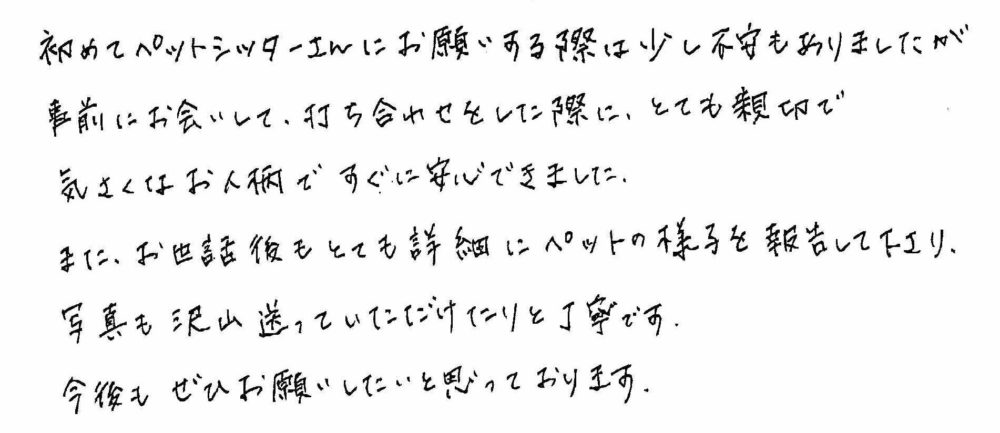 初めてペットシッターさんにお願いする際は少し不安もありましたが
事前にお会いして、打ち合わせをした際に、とても親切で
気さくなお人柄ですぐに安心できました。
また、お世話後もとても詳細にペットの様子を報告して下さり、
写真も沢山送っていただけたりと丁寧です。
今後もぜひお願いしたいと思っております。